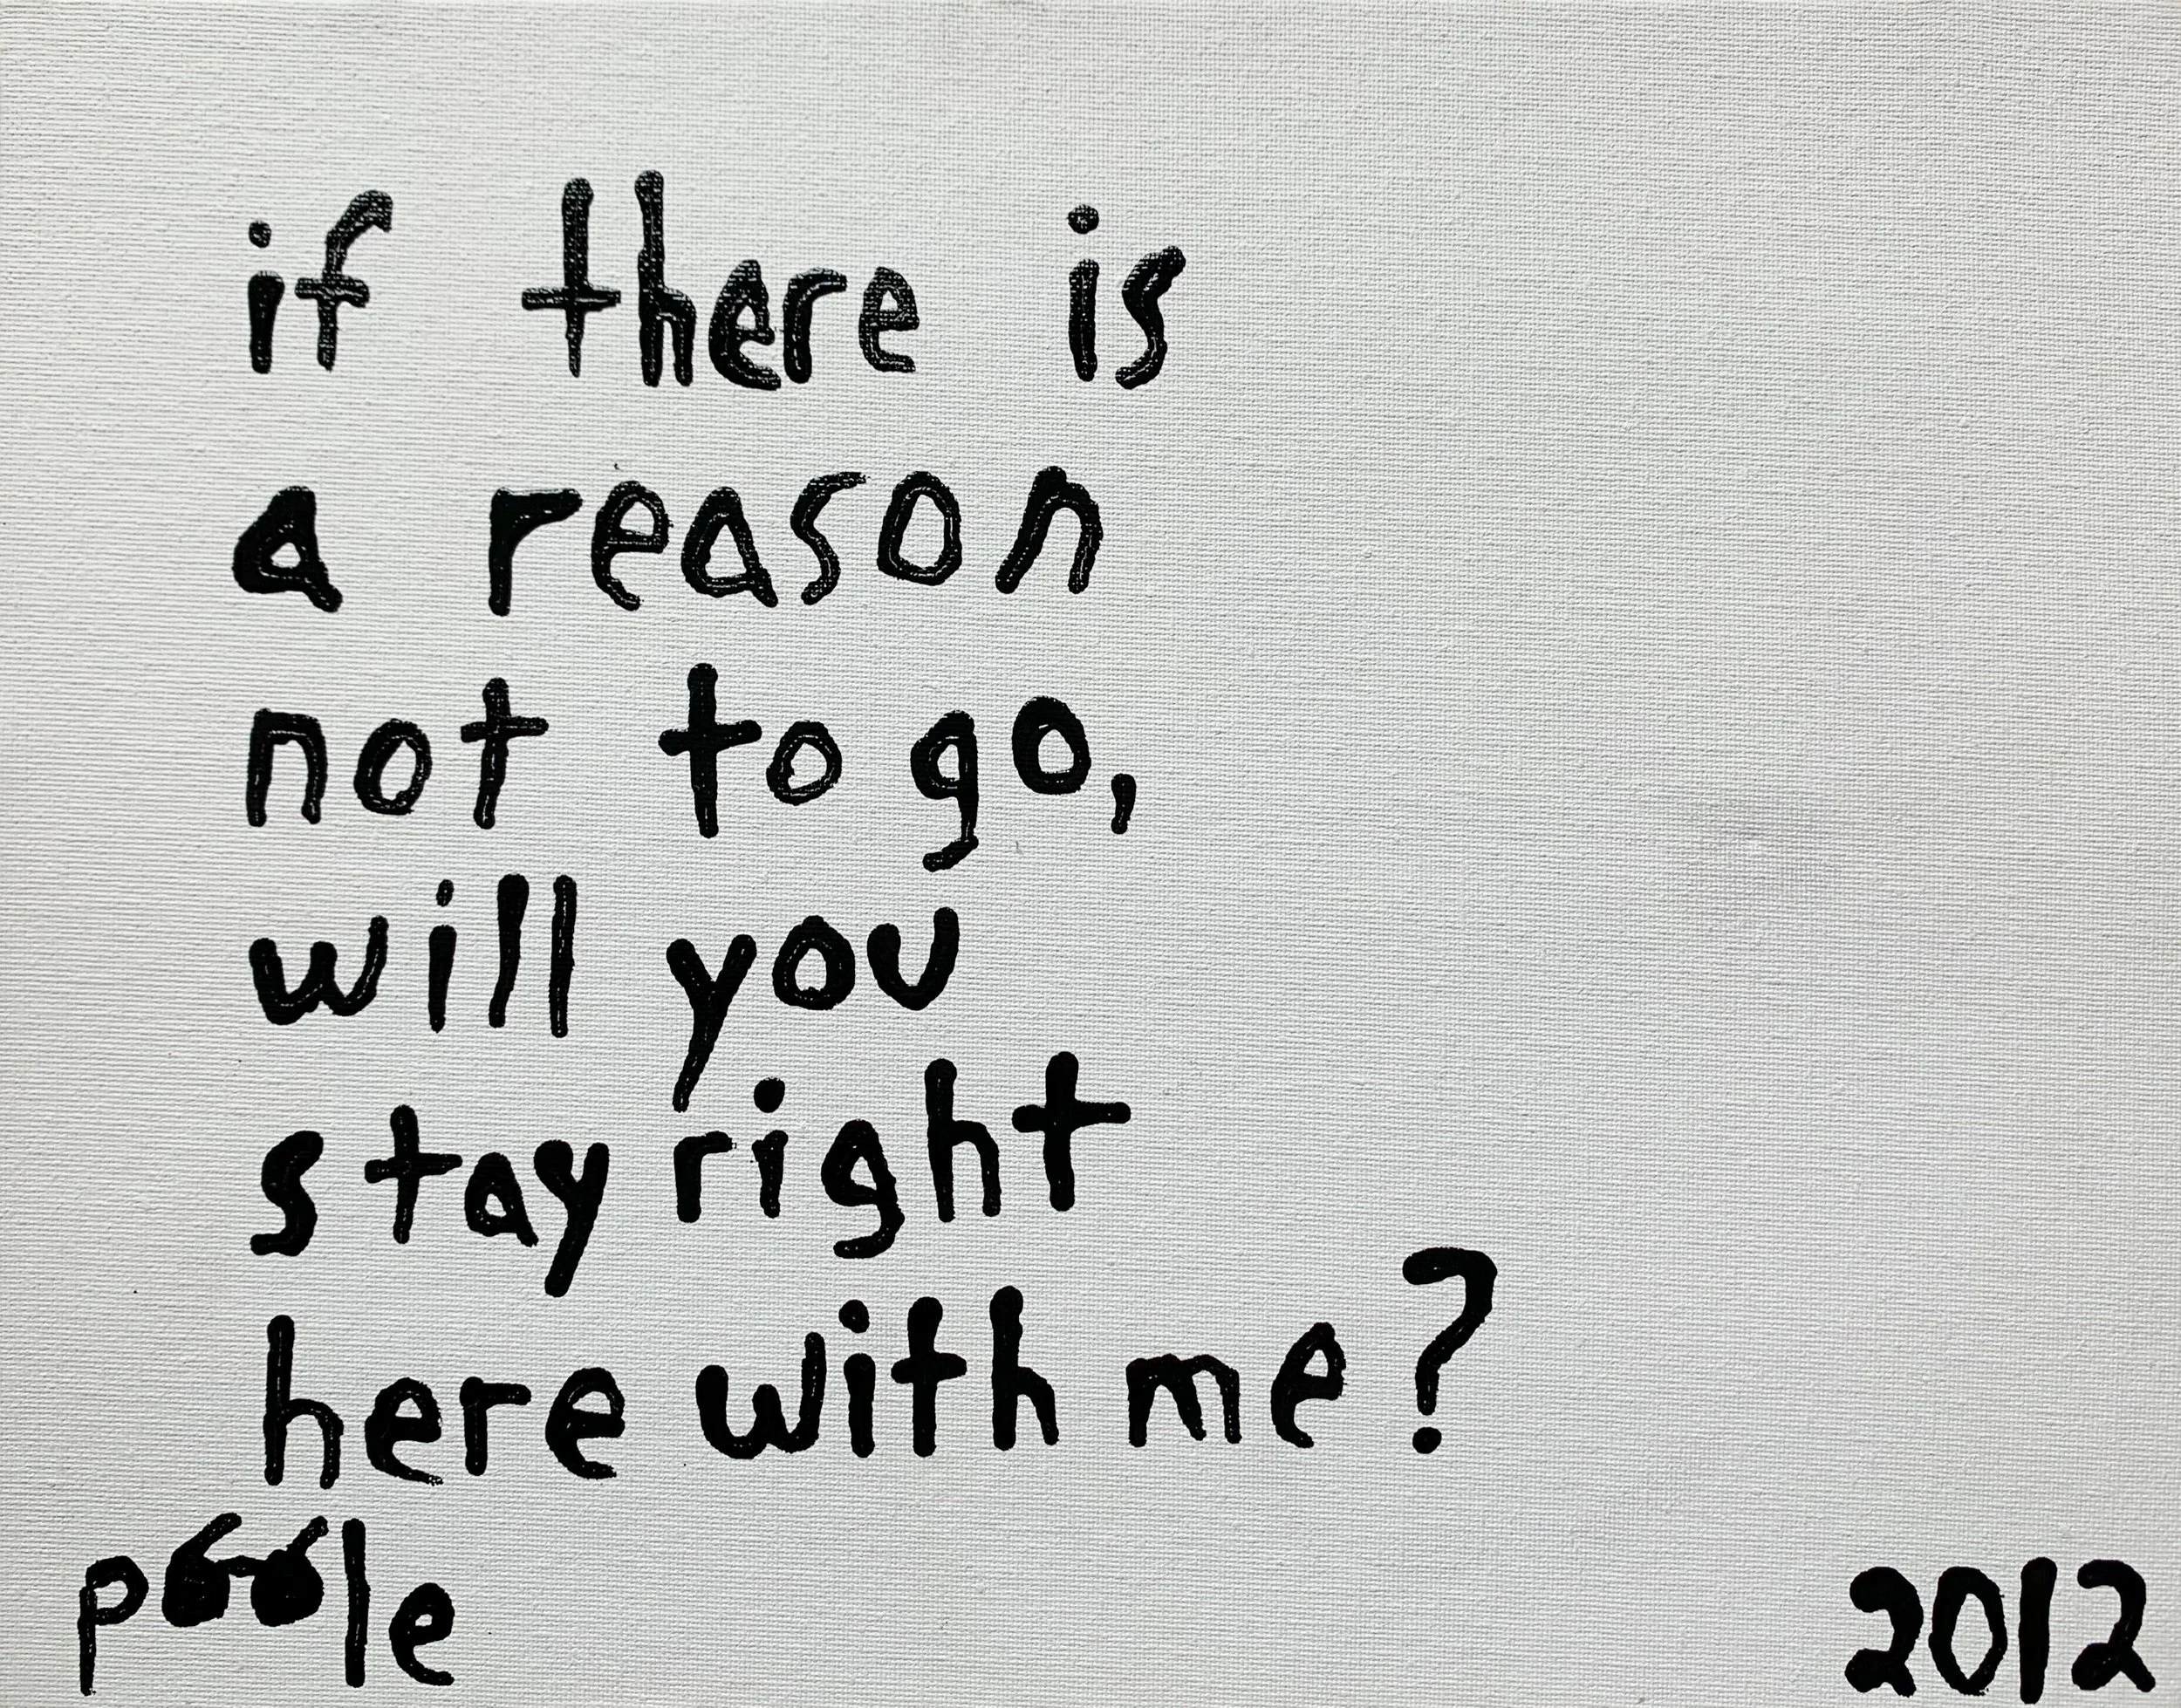 if there is
a reason
not to go,
will you
stay right
here with me?
poole
2012